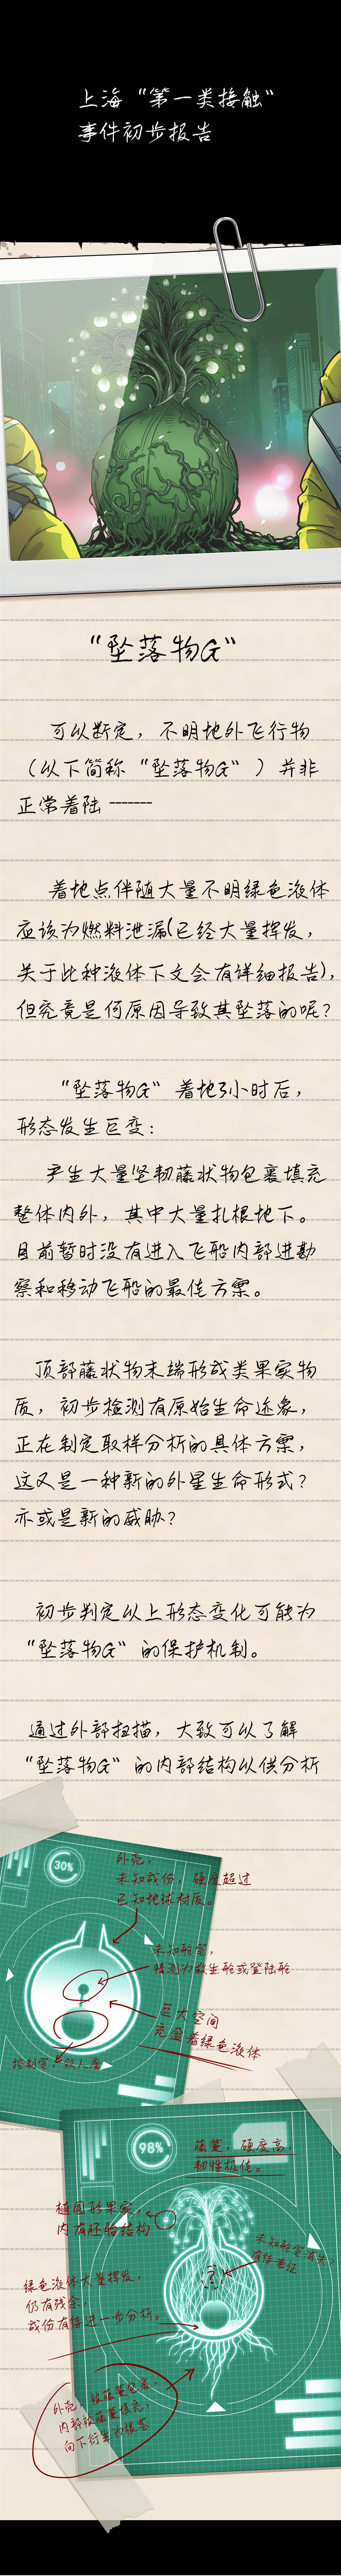 上海“第一类接触”
事件初步报告
“坠落物G”
可以断定，不明地外飞行物
（以下简称“坠落物G”）并非
正常着陆-------
着地点伴随大量不明绿色液体
应该为燃料泄漏(已经大量挥发，
关于此种液体下文会有详细报告)，
但究竟是何原因导致其坠落的呢？
“坠落物G”着地3小时后，
形态发生巨变：
产生大量坚韧藤状物包裹填充
整体内外，其中大量扎根地下。
目前暂时没有进入飞船内部进勘
察和移动飞船的最佳方案。
顶部藤状物末端形成类果实物
质，初步检测有原始生命迹象，
正在制定取样分析的具体方案，
这又是一种新的外星生命形式？
亦或是新的威胁？
初步判定以上形态变化可能为
“坠落物G”的保护机制。
通过外部扫描，大致可以了解
“坠落物G”的内部结构以供分析
30%
外壳，
未知成份，硬度超过
已知地球材质。
未知舱室，
猜测为救生舱或登陆舱
巨大空间
充盈着绿色液体
控制室
98%
藤蔓，硬度高，
韧性极佳。
椭圆形果实，
内有胚胎结构
未知舱室消失？
有待考证
绿色液体大量挥发，
仍有残余，
成份有待进一步分析。
外壳，被藤蔓包裹，
内部被藤蔓填充，
向下衍生为根茎